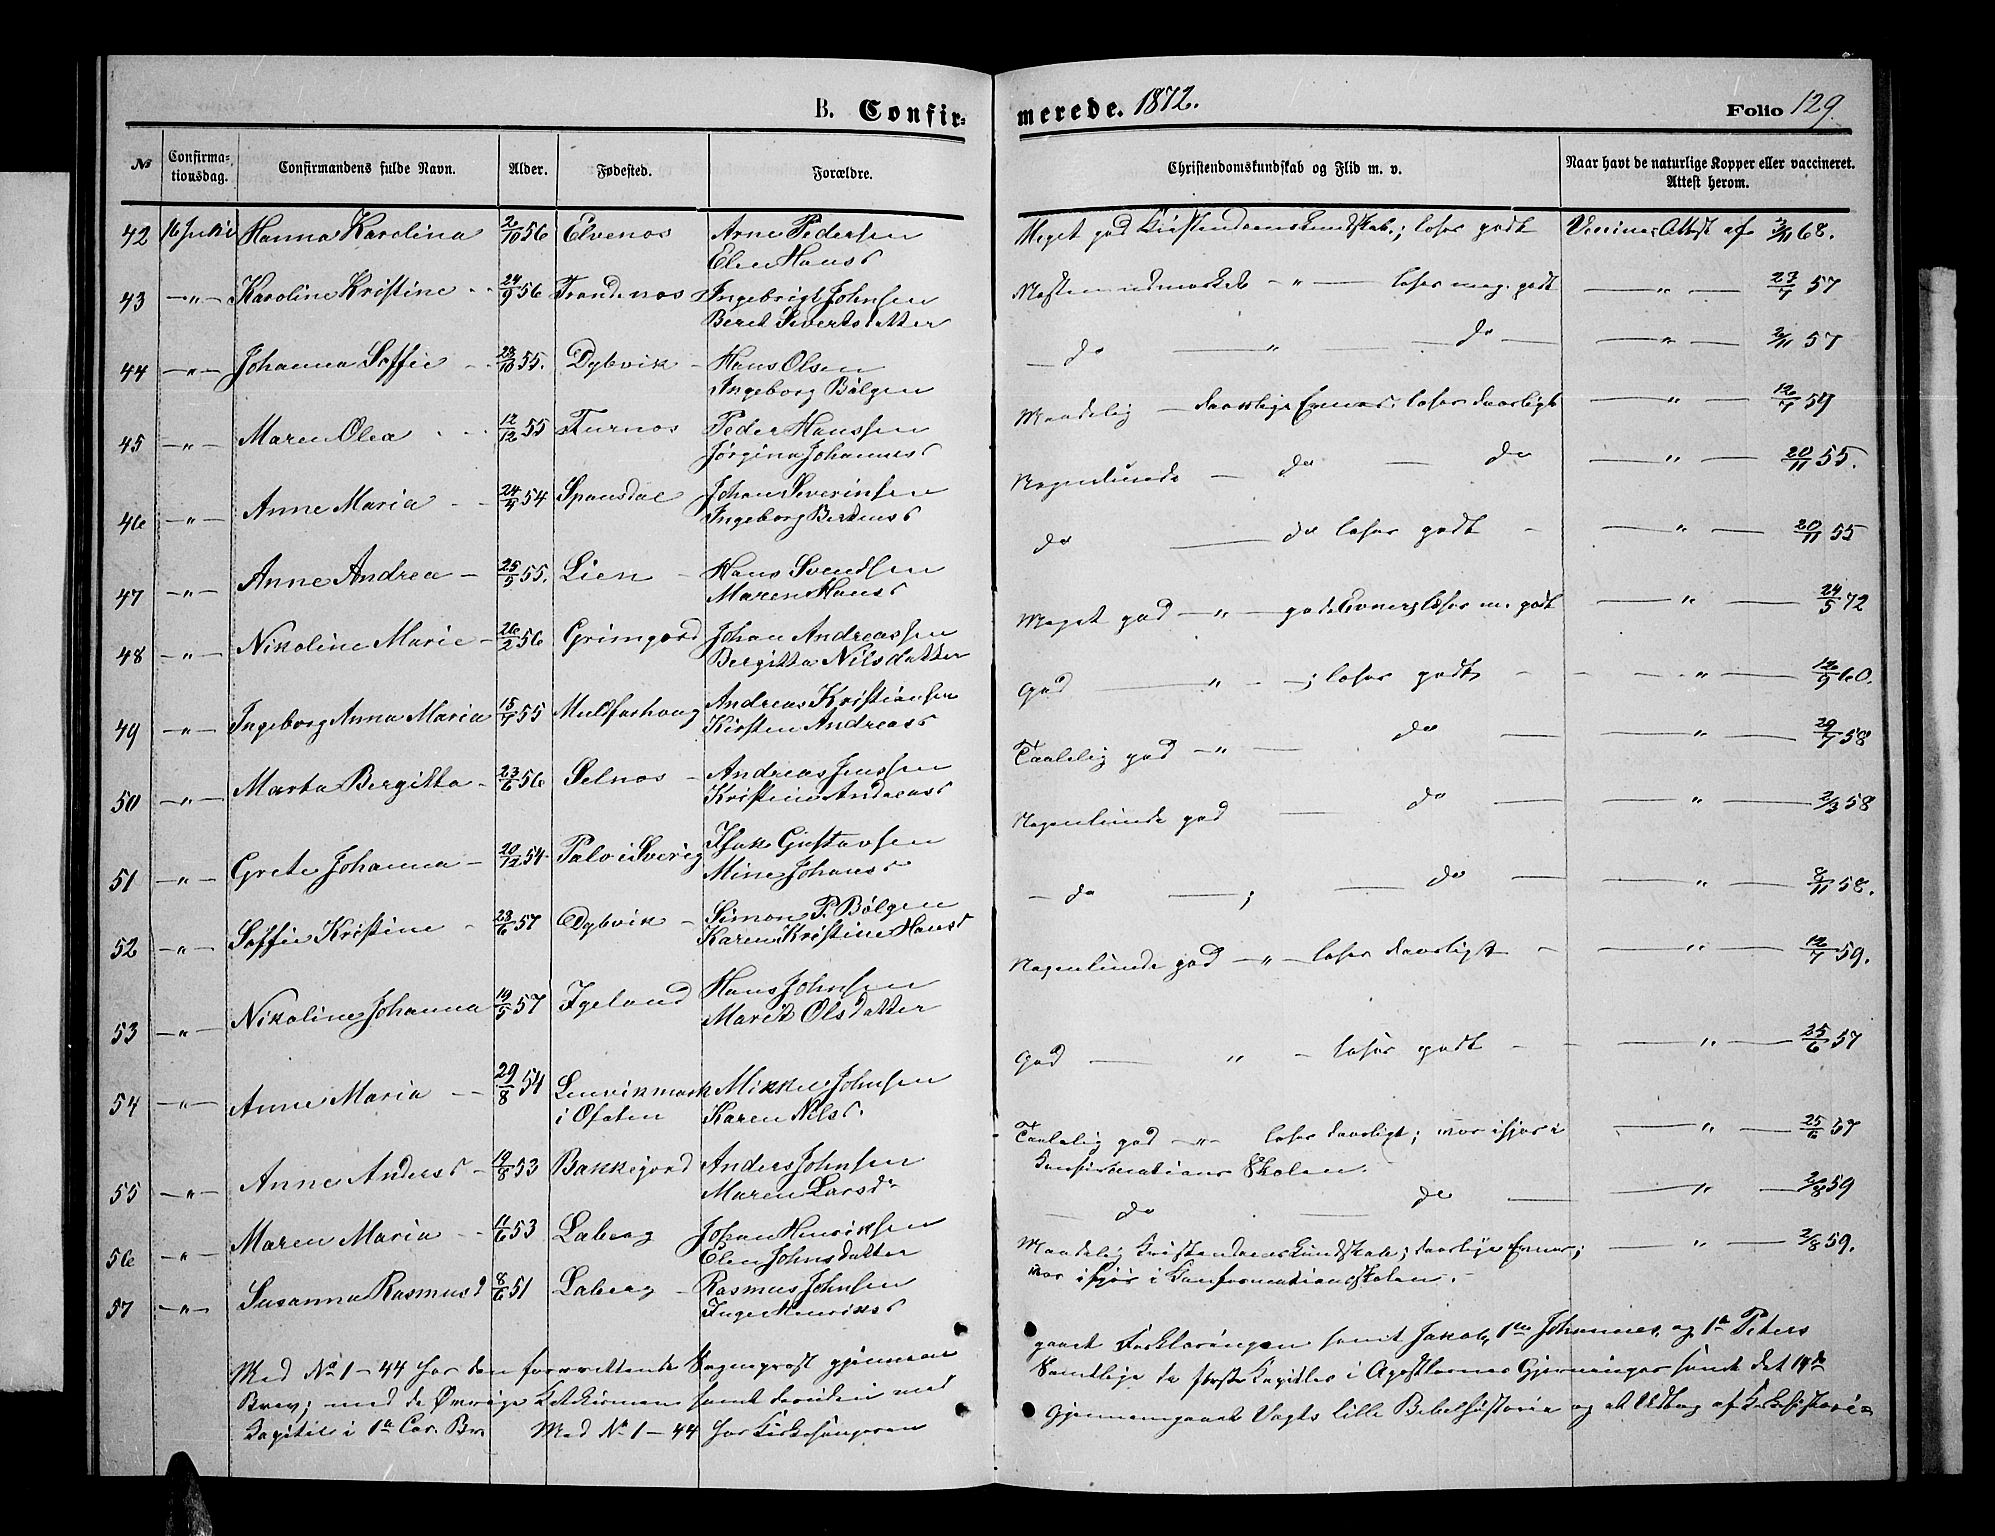 B. Confirmerede. 1872. Folio 129.
No Confirmationsdag. Confirmandens fulde Navn. Alder. Fødested. Forældre. Christendomskundskab og Flid m. v. Naar havt de naturlige Kopper eller vaccineret. Attest herom.
42 16 Juni Hanna Karolina 2/10 56 Elvenes Arne Pedersen Meget god Kristendomskundskab; læser godt Vaccines Attest af 3/11 68.
Elen Hansd
43 —"— Karoline Kristine 24/9 56 Trondenes Ingebrigt Johnsen Næsten udmærket —"— læser meg. godt —"— 23/7 57
Beret Sivertsdatter
44 —"— Johanna Soffie 23/10 55. Dybvik Hans Olsen do —"— do —"— 2/11 57
Ingeborg Bølgen
45 —"— Maren Olea 12/12 55 Turnes Peder Hanssen Maadelig — daarlige Evner. læser daarligt —"— 12/7 59
Jørgina Johannesd
46 —"— Anne Maria 24/5 54 Spansdal Johan Severinsen Nogenlunde — do — do —"— 20/11 55.
Ingeborg Berthusd
47 —"— Anne Andrea 25/5 55. Lien Hans Svendsen do — do læser godt —"— 20/11 55
Maren Hansd
48 —"— Nikoline Marie 26/2 56 Grimgord Johan Andreassen Meget god —"— gode Evner; læser m. godt —"— 24/5 72
Bergitta Nilsdatter
49 —"— Ingeborg Anna Maria 15/7 55 Muldfarhaug Andreas Kristiansen God —"—; læser godt —"— 12/9 60.
Kirsten Andreasd
50 —"— Marta Bergitta 23/6 56 Selnes Andreas Jenssen Taalelig god —"— do —"— 29/7 58
Kristine Andreasd
51 —"— Grete Johanna 20/12 54 Palo i Sverig Isak Gustavsen Nogenlunde god — do —"— 2/3 58
Mine Johansd
52 —"— Soffie Kristine 28/6 57 Dybvik Simon P. Bølgen do —; — do —"— 8/11 58.
Karen Kristine Hansd
53 —"— Nikoline Johanna 19/5 57 Igeland Hans Johnsen Nogenlunde god —"— læser daarligt —"— 12/7 59.
Marit Olsdatter
54 —"— Anne Maria 29/8 54 Lenvikmark Mikkel Johnsen God —"— læser godt —"— 25/6 57
i Ofoten Karen Nilsd.
55 —"— Anne Andersd 19/8 53 Bakkejord Anders Johnsen Taalelig god —"— læser daarligt; var ifjor i —"— 25/6 57
Maren Larsdr Konfirmations Skolen.
56 —"— Maren Maria 11/6 53 Laberg Johan Henriksen do — do —"— 2/8 59
Elen Johnsdatter
57 —"— Susanna Rasmusd 8/6 51 Laberg Rasmus Johnsen Maadelig Kristendomskundskab; daarlige Evner; —"— 2/8 59.
Inger Henriksd var ifjor i Konfirmationsskolen.
Med No 1–44 har den forrettende Sogneprest gjennemgaaet Forklaringen samt Jakob, 1ste Johannes, og 1ste Peters
Brev; med de Øvrige Katekismen samt desuden med Samtlige de første Kapitler i Apostlernes Gjerninger samt det 14de
Kapitel i 1ste Cor. Br. Med No 1–44 har Kirkesangeren Gjennemgaaet Vogts lille Bibelhistorie og et Udtog af Kirkehistorien